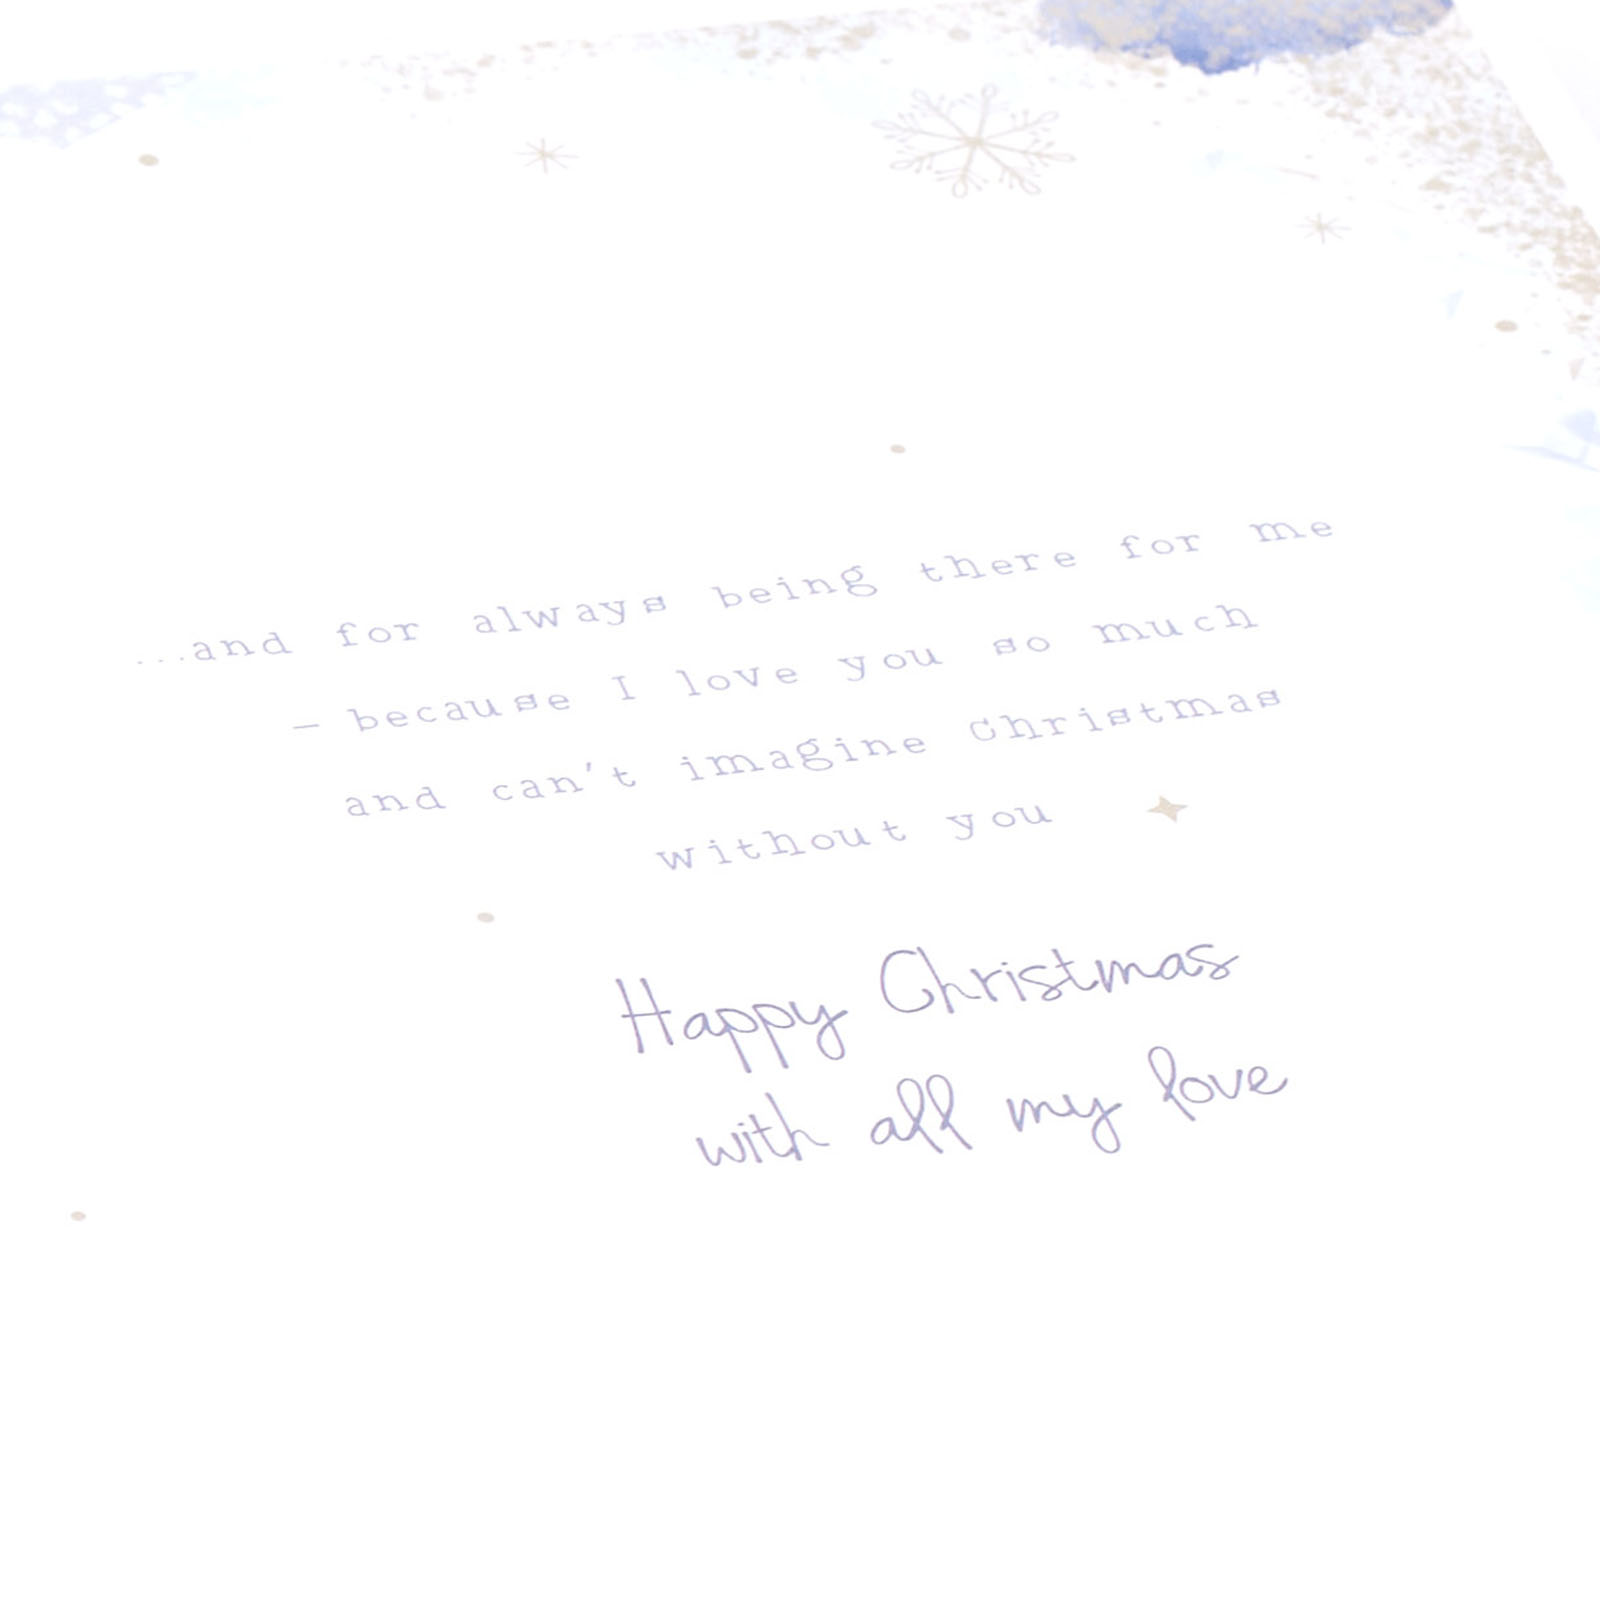 ...and for always being there for me
– because I love you so much
and can't imagine Christmas
without you
Happy Christmas
with all my love